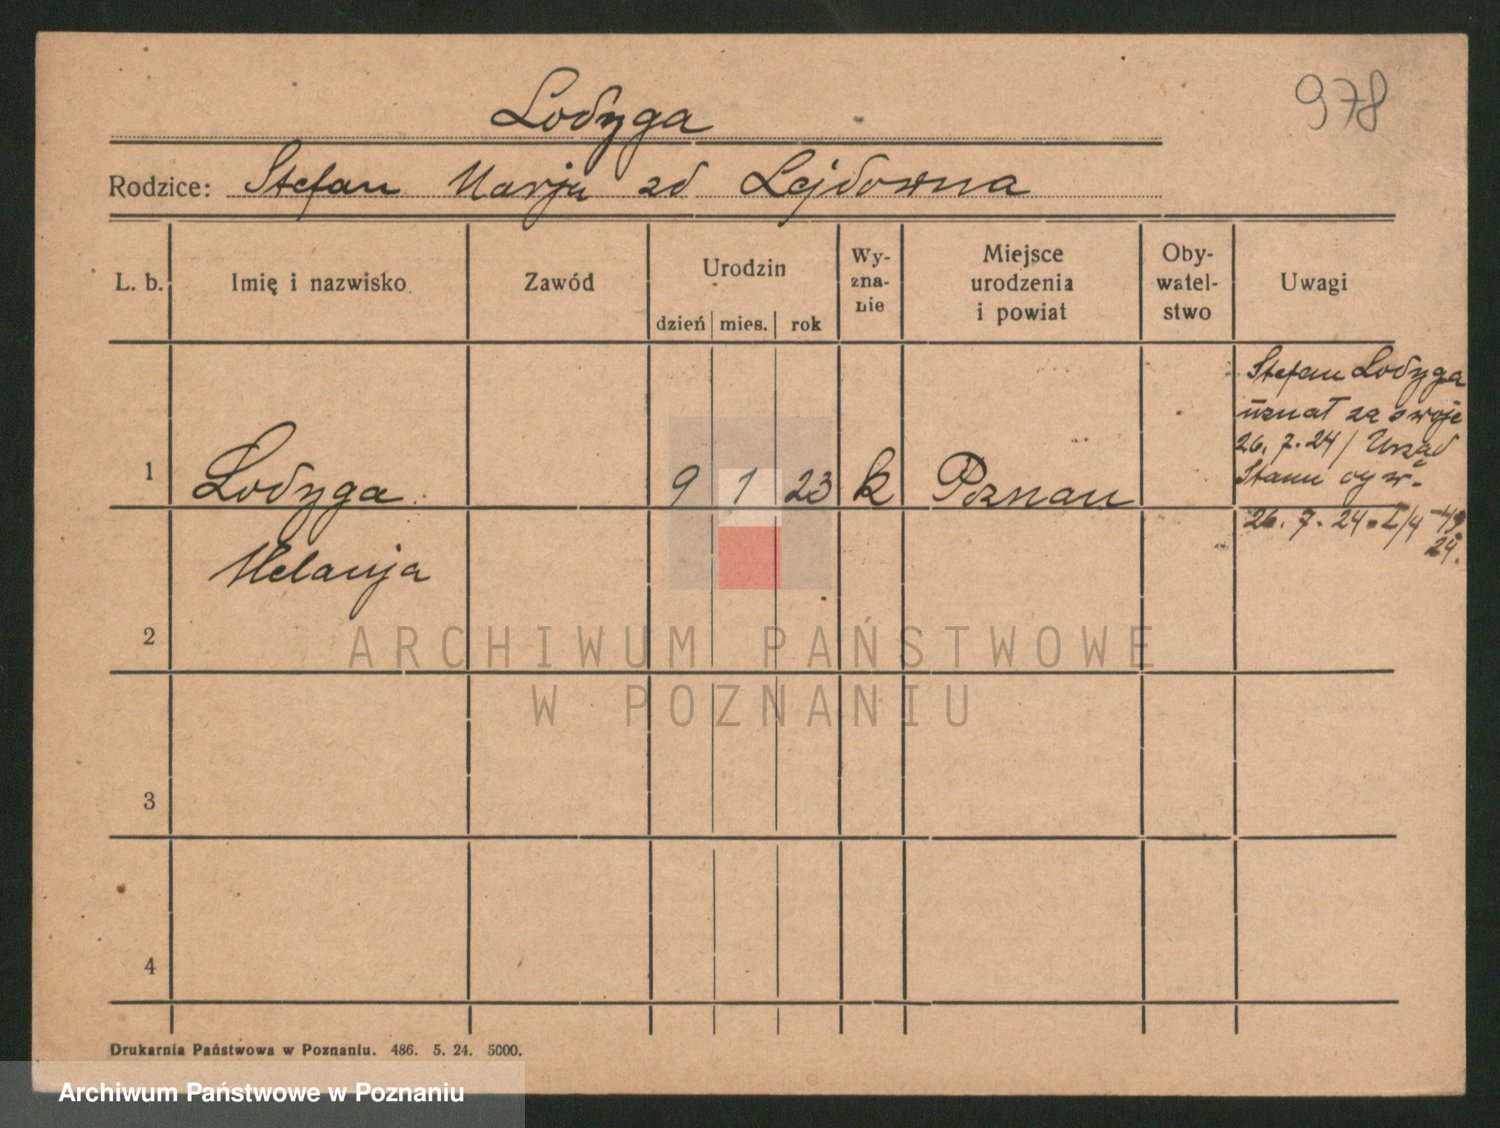 978
Lodyga
Rodzice: Stefan Marja zd Lejdowna
L. b.
Imię i nazwisko
Zawód
Urodzin
dzień mies. rok
Wy-
zna-
nie
Miejsce
urodzenia
i powiat
Oby-
watel-
stwo
Uwagi
1
Lodyga
Melanja
9 1 23
k
Poznan
Stefan Lodyga
uznał za swoje
26. 7. 24 / Urząd
Stanu cyw.
26. 7. 24.
24.
2
3
4
ARCHIWUM PAŃSTWOWE
W POZNANIU
Drukarnia Państwowa w Poznaniu. 486. 5. 24. 5000.
Archiwum Państwowe w Poznaniu